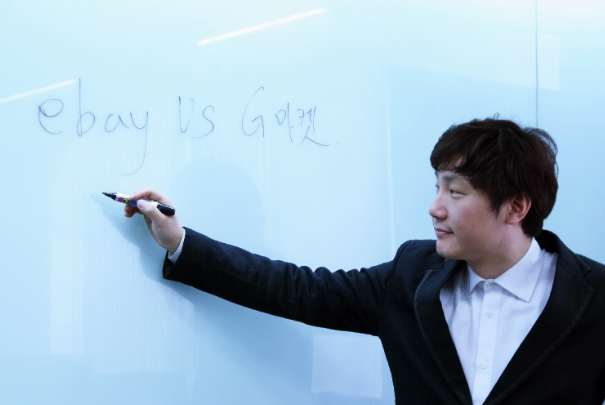 ebay Us G마켓.